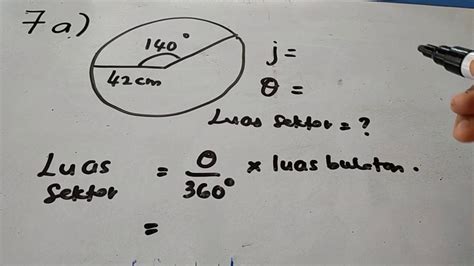 7a)
140°
42cm
j =
θ =
Luas Sektor = ?
Luas Sektor = θ/360° × luas bulatan.
=